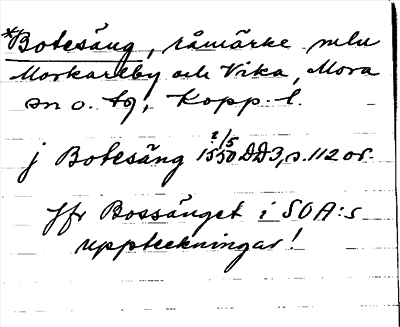 *Botesäng, råmärke mlu
Morkarlby och Vika, Mora
sn o. tg, Kopp. l.
j Botesäng 1550 2/5 DD3, s. 112 or.
Jfr Bossänget i SOA:s
uppteckningar!